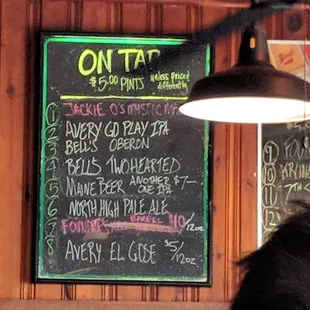 ON TAP
$5.00 PINTS unless priced
differently
1 JACKIE O'S MYSTIC MA
2 AVERY GO PLAY IPA
3 BELL'S OBERON
4 BELL'S TWO HEARTED
5 MAINE BEER ANOTHER ONE IPA $7—
6 NORTH HIGH PALE ALE
7 FOUNDERS BARREL $10/12oz
8 AVERY EL GOSE $5/12oz
10
11
12